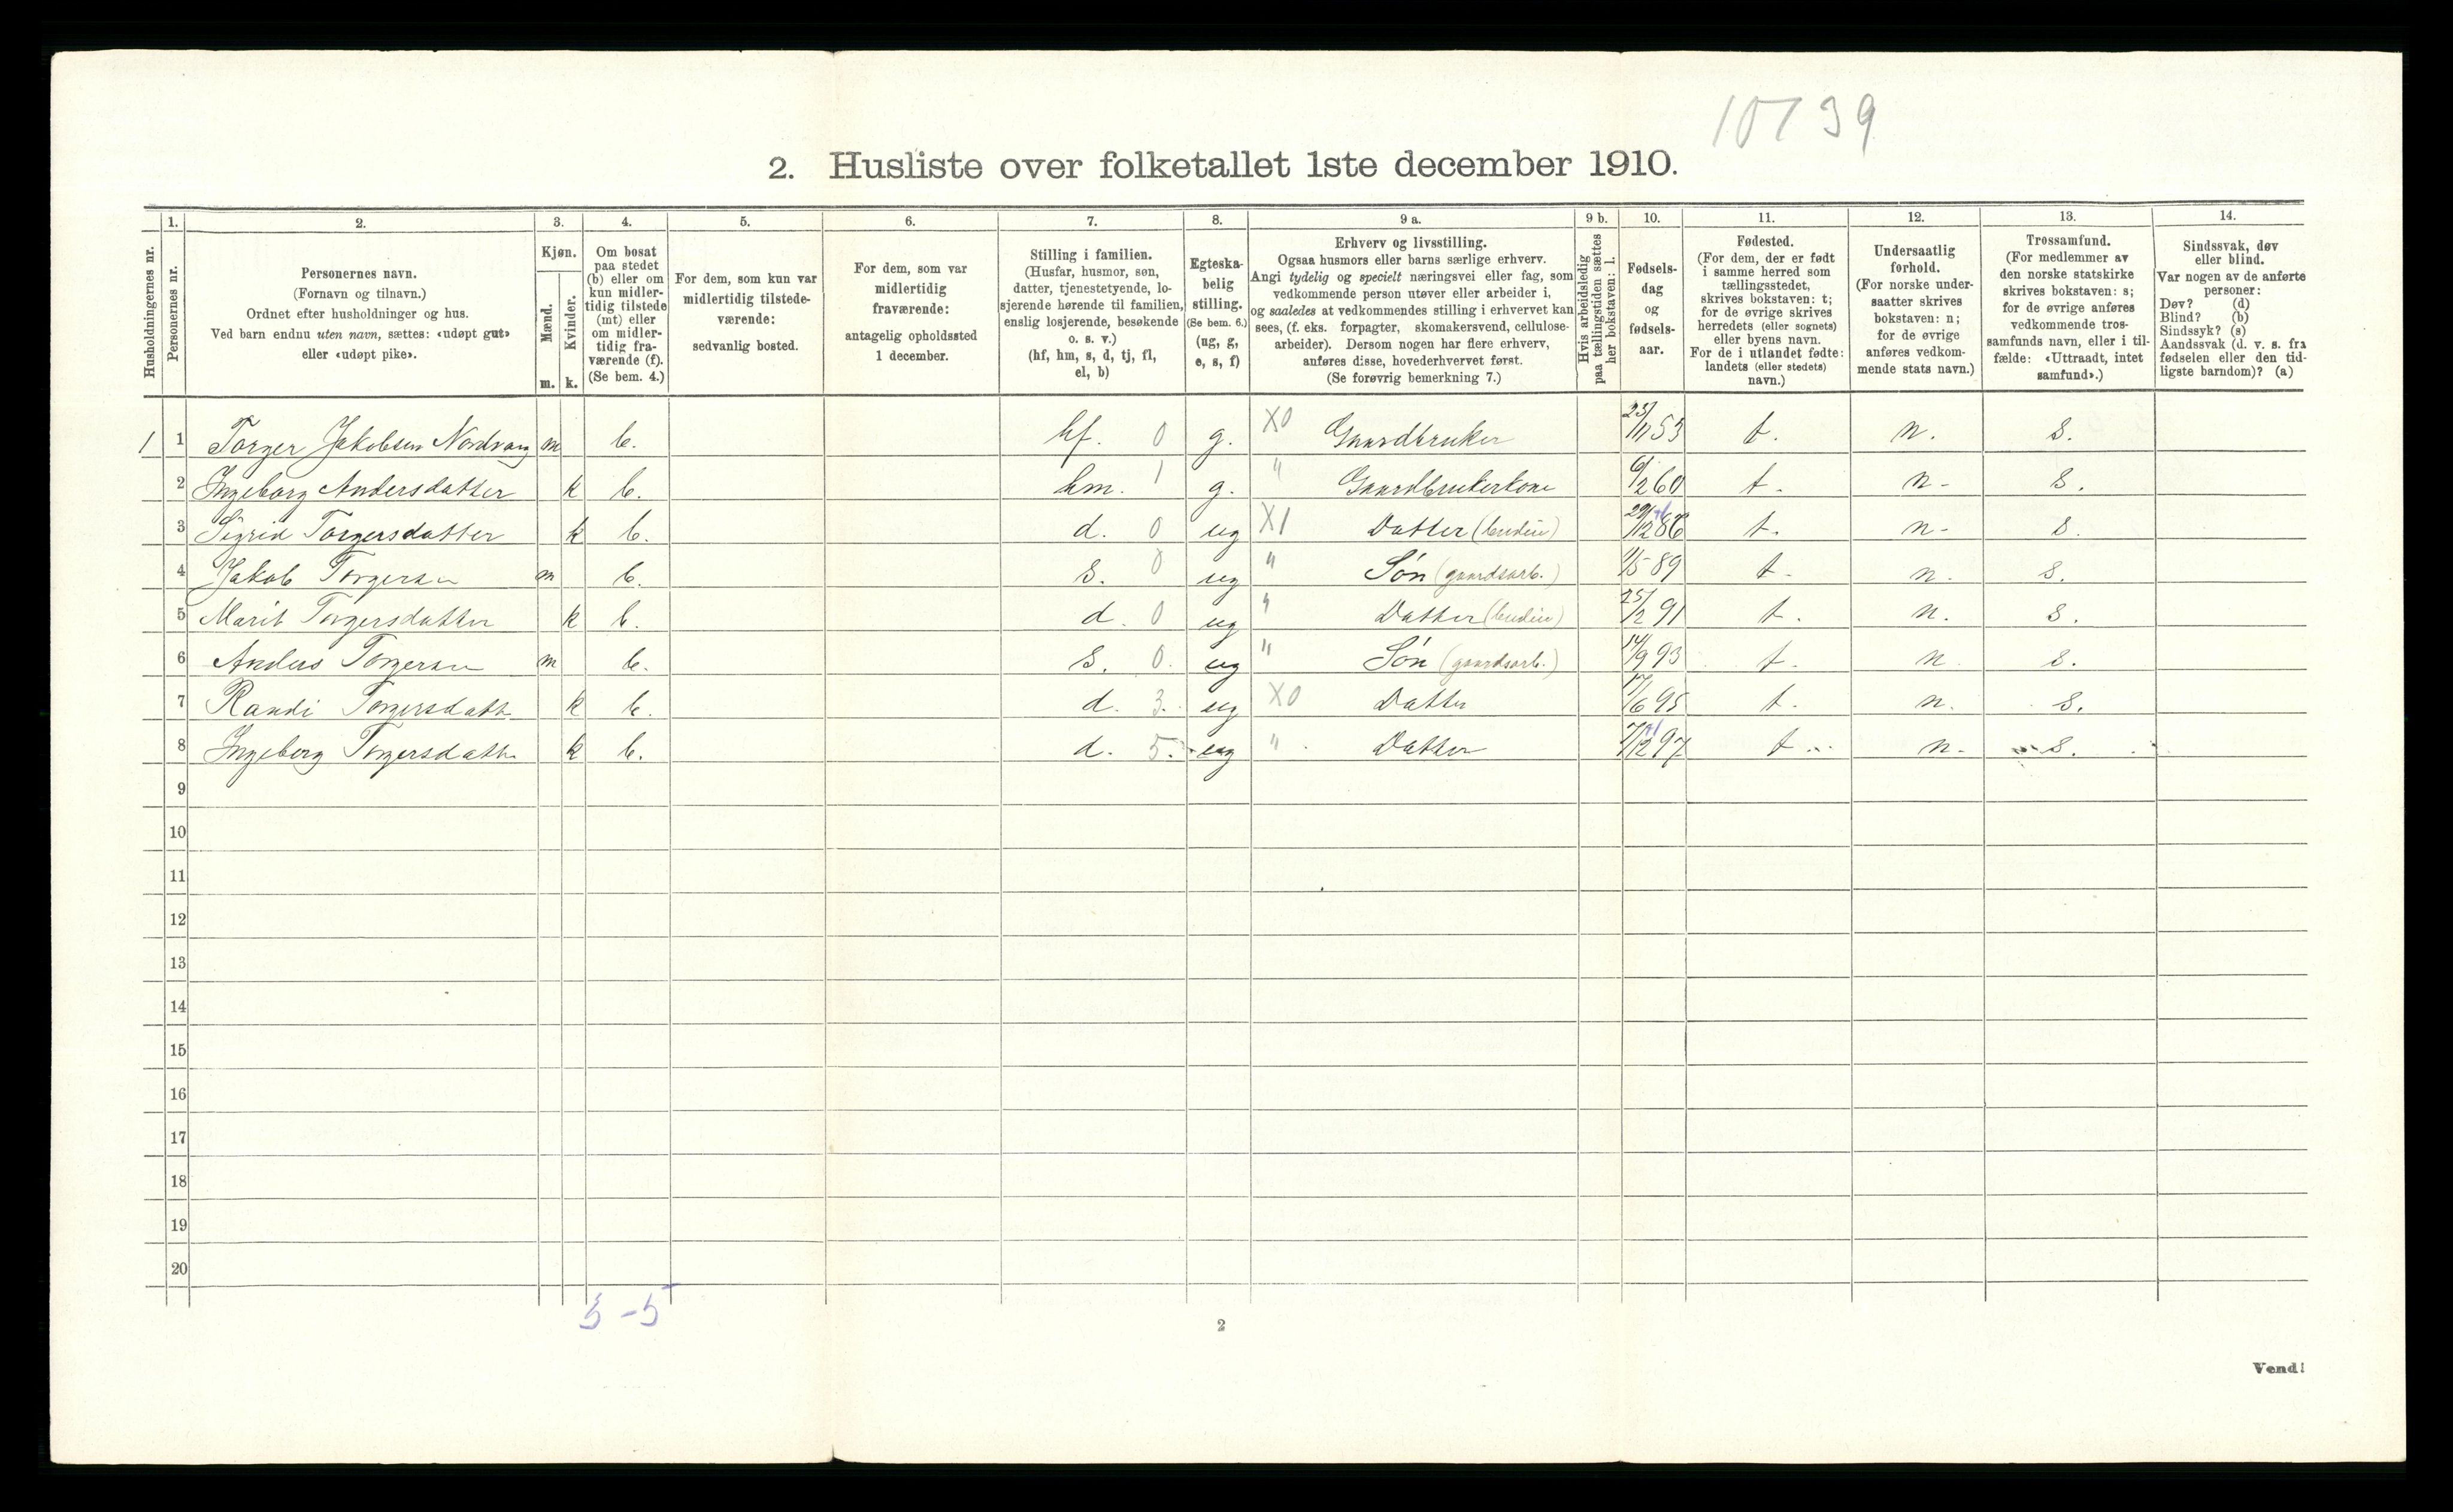 10739
2. Husliste over folketallet 1ste december 1910.
Husholdningernes nr.
1.
Personernes nr.
2.
Personernes navn.
(Fornavn og tilnavn.)
Ordnet efter husholdninger og hus.
Ved barn endnu uten navn, sættes: «udøpt gut»
eller «udøpt pike».
3.
Kjøn.
Mænd.
Kvinder.
m. k.
4.
Om bosat
paa stedet
(b) eller om
kun midler-
tidig tilstede
(mt) eller
om midler-
tidig fra-
værende (f).
(Se bem. 4.)
5.
For dem, som kun var
midlertidig tilstede-
værende:
sedvanlig bosted.
6.
For dem, som var
midlertidig
fraværende:
antagelig opholdssted
1 december.
7.
Stilling i familien.
(Husfar, husmor, søn,
datter, tjenestetyende, lo-
sjerende hørende til familien,
enslig losjerende, besøkende
o. s. v.)
(hf, hm, s, d, tj, fl,
el, b)
8.
Egteska-
belig
stilling.
(Se bem. 6.)
(ug, g,
e, s, f)
9 a.
Erhverv og livsstilling.
Ogsaa husmors eller barns særlige erhverv.
Angi tydelig og specielt næringsvei eller fag, som
vedkommende person utøver eller arbeider i,
og saaledes at vedkommendes stilling i erhvervet kan
sees, (f. eks. forpagter, skomakersvend, cellulose-
arbeider). Dersom nogen har flere erhverv,
anføres disse, hovederhvervet først.
(Se forøvrig bemerkning 7.)
9 b.
Hvis arbeidsledig
paa tællingstiden sættes
her bokstaven: l.
10.
Fødsels-
dag
og
fødsels-
aar.
11.
Fødested.
(For dem, der er født
i samme herred som
tællingsstedet,
skrives bokstaven: t;
for de øvrige skrives
herredets (eller sognets)
eller byens navn.
For de i utlandet fødte:
landets (eller stedets)
navn.)
12.
Undersaatlig
forhold.
(For norske under-
saatter skrives
bokstaven: n;
for de øvrige
anføres vedkom-
mende stats navn.)
13.
Trossamfund.
(For medlemmer av
den norske statskirke
skrives bokstaven: s;
for de øvrige anføres
vedkommende tros-
samfunds navn, eller i til-
fælde: «Uttraadt, intet
samfund».)
14.
Sindssvak, døv
eller blind.
Var nogen av de anførte
personer:
Døv? (d)
Blind? (b)
Sindssyk? (s)
Aandssvak (d. v. s. fra
fødselen eller den tid-
ligste barndom)? (a)
1 1 Torger Jakobsen Nordvang m b. hf. 0 g. X0 Gaardbruker 23/11 53 t. n. s.
2 Ingeborg Andersdatter k b. hm. 1 g. " Gaardbrukerkone 6/2 60 t. n- s.
3 Sigrid Torgersdatter k b. d. 0 ug X1 Datter (budeie) 29/12 86 t. n- s.
4 Jakob Torgersen m b. s. 0 ug " Søn (gaardsarb.) 1/5 89 t. n. s.
5 Marit Torgersdatter k b. d. 0 ug " Datter (budeie) 25/2 91 t. n. s.
6 Anders Torgersen m b. s. 0. ug " Søn (gaardsarb.) 14/9 93 t. n. s.
7 Randi Torgersdatt k b. d. 3. ug X0 Datter 17/6 95 t. n. s.
8 Ingeborg Torgersdatt k b. d. 5. ug " Datter 7/12 97 t. n. s.
9
10
11
12
13
14
15
16
17
18
19
20
3 - 5
2
Vend!